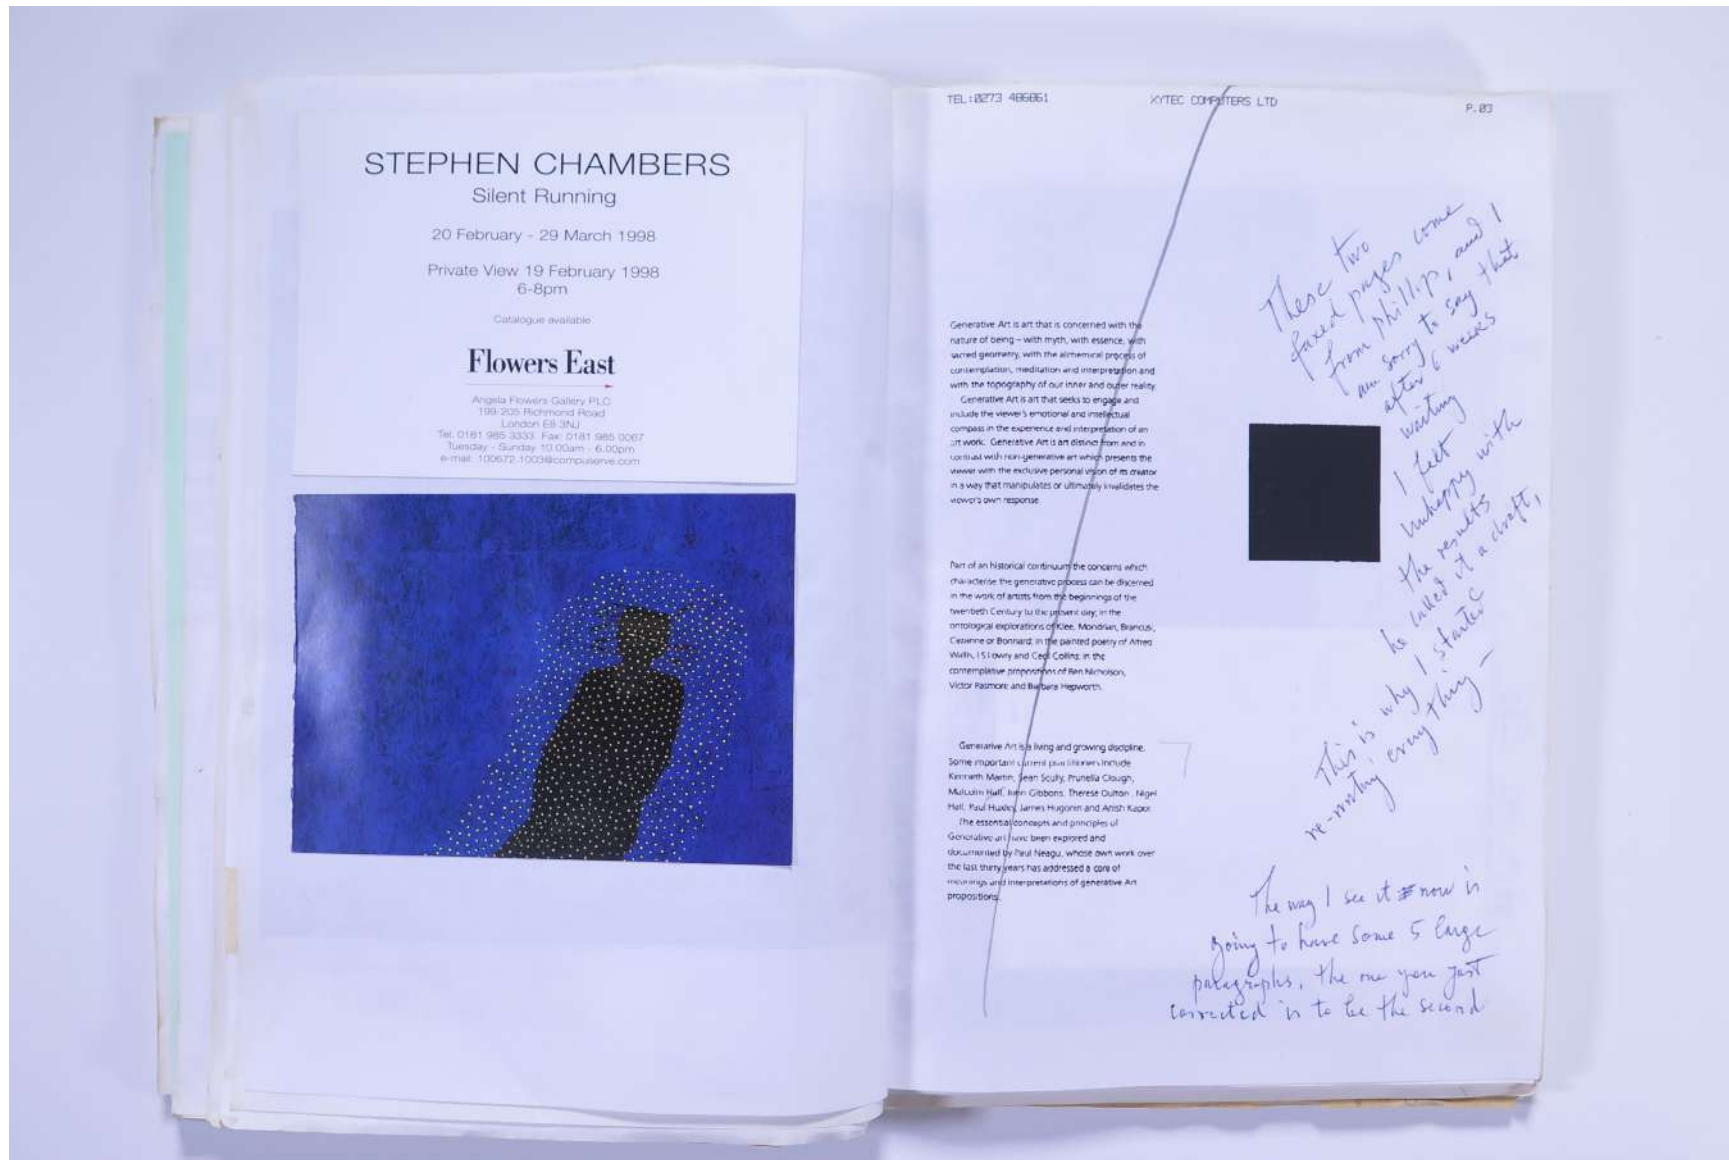 STEPHEN CHAMBERS
Silent Running
20 February - 29 March 1998
Private View 19 February 1998
6-8pm
Catalogue available
Flowers East
Angela Flowers Gallery PLC
199-205 Richmond Road
London E8 3NJ
Tel: 0181 985 3333 Fax: 0181 985 0067
Tuesday - Sunday 10.00am - 6.00pm
e-mail: 100672.1003@compuserve.com
TEL:0273 486861 XYTEC COMPUTERS LTD P.03
Generative Art is art that is concerned with the
nature of being – with myth, with essence, with
sacred geometry, with the alchemical process of
contemplation, meditation and interpretation and
with the topography of our inner and outer reality.
Generative Art is art that seeks to engage and
include the viewer's emotional and intellectual
compass in the experience and interpretation of an
art work. Generative Art is art distinct from and in
contrast with non-generative art which presents the
viewer with the exclusive personal vision of its creator
in a way that manipulates or ultimately invalidates the
viewer's own response.
Part of an historical continuum the concerns which
characterise the generative process can be discerned
in the work of artists from the beginnings of the
twentieth Century to the present day; in the
ontological explorations of Klee, Mondrian, Brancusi,
Cezanne or Bonnard; in the painted poetry of Alfred
Wallis, LS Lowry and Cecil Collins; in the
contemplative propositions of Ben Nicholson,
Victor Pasmore and Barbara Hepworth.
Generative Art is a living and growing discipline.
Some important current practitioners include
Kenneth Martin, Sean Scully, Prunella Clough,
Malcolm Hall, John Gibbons, Therese Oulton, Nigel
Hall, Paul Huxley, James Hugonin and Anish Kapor.
The essential concepts and principles of
Generative art have been explored and
documented by Paul Neagu, whose own work over
the last thirty years has addressed a core of
meanings and interpretations of generative Art
propositions.
These two
faxed pages come
from phillip, and I
am sorry to say that
after 6 weeks
waiting
I felt
unhappy with
the results
he called it a draft,
This is why I started
re-writing every thing –
The way I see it now is
going to have some 5 large
paragraphs, the one you just
corrected is to be the second